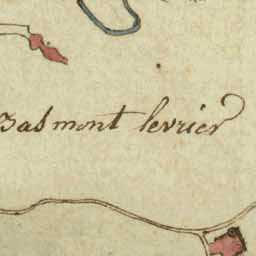 Bas mont levrier